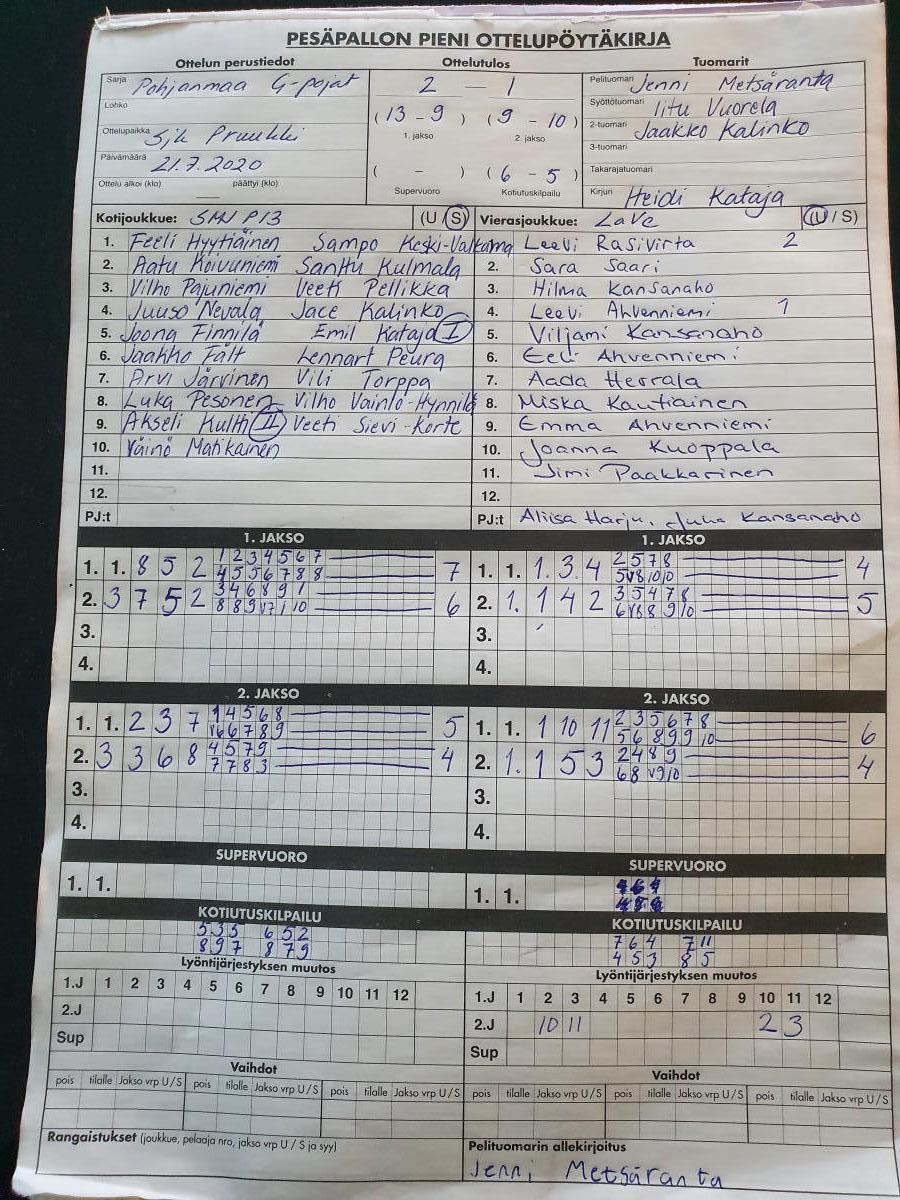 PESÄPALLON PIENI OTTELUPÖYTÄKIRJA
Ottelun perustiedot Ottelutulos Tuomarit
Sarja Pohjanmaa G-pojat 2 - 1 Pelituomari Jenni Metsäranta
Lohko (13 - 9) (9 - 10) Syöttötuomari Iitu Vuorela
1. jakso 2. jakso
Ottelupaikka Sjk Pruukki 2-tuomari Jaakko Kalinko
3-tuomari
Päivämäärä 21.7.2020 ( - ) (6 - 5) Takarajatuomari
Ottelu alkoi (klo) päättyi (klo) Supervuoro Kotiutuskilpailu Kirjuri Heidi Kataja
Kotijoukkue: SMJ P13 (U / S) Vierasjoukkue: LaVe (U / S)
1. Feeli Hyytiäinen Sampo Keski-Valkama Leevi Rasivirta 2
2. Aatu Koivuniemi Santtu Kulmala 2. Sara Saari
3. Vilho Pajuniemi Veeti Pellikka 3. Hilma Kansanaho
4. Juuso Nevala Jace Kalinko 4. Leevi Ahvenniemi 1
5. Joona Finnilä Emil Kataja I 5. Viljami Kansanaho
6. Jaakko Fält Lennart Peura 6. Eeli Ahvenniemi
7. Arvi Järvinen Vili Torppa 7. Aada Herrala
8. Luka Pesonen Vilho Vainio-Hynnilä 8. Miska Kautiainen
9. Akseli Kultti II Veeti Sievi-Korte 9. Emma Ahvenniemi
10. Väinö Matikainen 10. Joanna Kuoppala
11. 11. Jimi Paakkarinen
12. 12.
PJ:t PJ:t Aliisa Harju, Juha Kansanaho
1. JAKSO 1. JAKSO
1. 1. 8 5 2 1 2 3 4 5 6 7 7 1. 1. 1. 3. 4 2 5 7 8 4
4 5 5 6 7 8 8 5 v8 10 10
2. 3 7 5 2 3 4 6 8 9 1 6 2. 1. 1 4 2 3 5 4 7 8 5
8 8 9 v7 1 10 6 v8 8 9 10
3. 3.
4. 4.
2. JAKSO 2. JAKSO
1. 1. 2 3 7 1 4 5 6 8 5 1. 1. 1 10 11 2 3 5 6 7 8 6
v6 6 7 8 9 5 6 8 9 9 10
2. 3 3 6 8 4 5 7 9 4 2. 1. 1 5 3 2 4 8 9 4
7 7 8 3 6 8 v9 10
3. 3.
4. 4.
SUPERVUORO SUPERVUORO
1. 1. 1. 1.
KOTIUTUSKILPAILU KOTIUTUSKILPAILU
5 3 5 6 5 2 7 6 4 7 11
8 9 7 8 7 9 4 5 3 8 5
Lyöntijärjestyksen muutos Lyöntijärjestyksen muutos
1.J 1 2 3 4 5 6 7 8 9 10 11 12 1.J 1 2 3 4 5 6 7 8 9 10 11 12
2.J 2.J 10 11 2 3
Sup Sup
Vaihdot Vaihdot
pois tilalle Jakso vrp U/S pois tilalle Jakso vrp U/S pois tilalle Jakso vrp U/S pois tilalle Jakso vrp U/S pois tilalle Jakso vrp U/S pois tilalle Jakso vrp U/S
Rangaistukset (joukkue, pelaaja nro, jakso vrp U / S ja syy) Pelituomarin allekirjoitus
Jenni Metsäranta